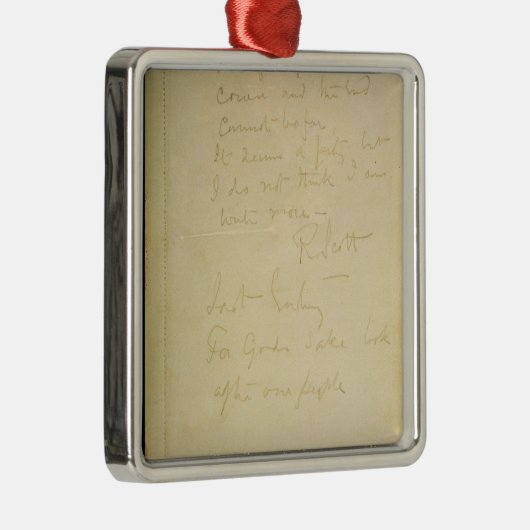 course and the end
cannot be far.
It seems a pity, but
I do not think I can
write more —
R. Scott
Last Entry
For Gods Sake look
after our people